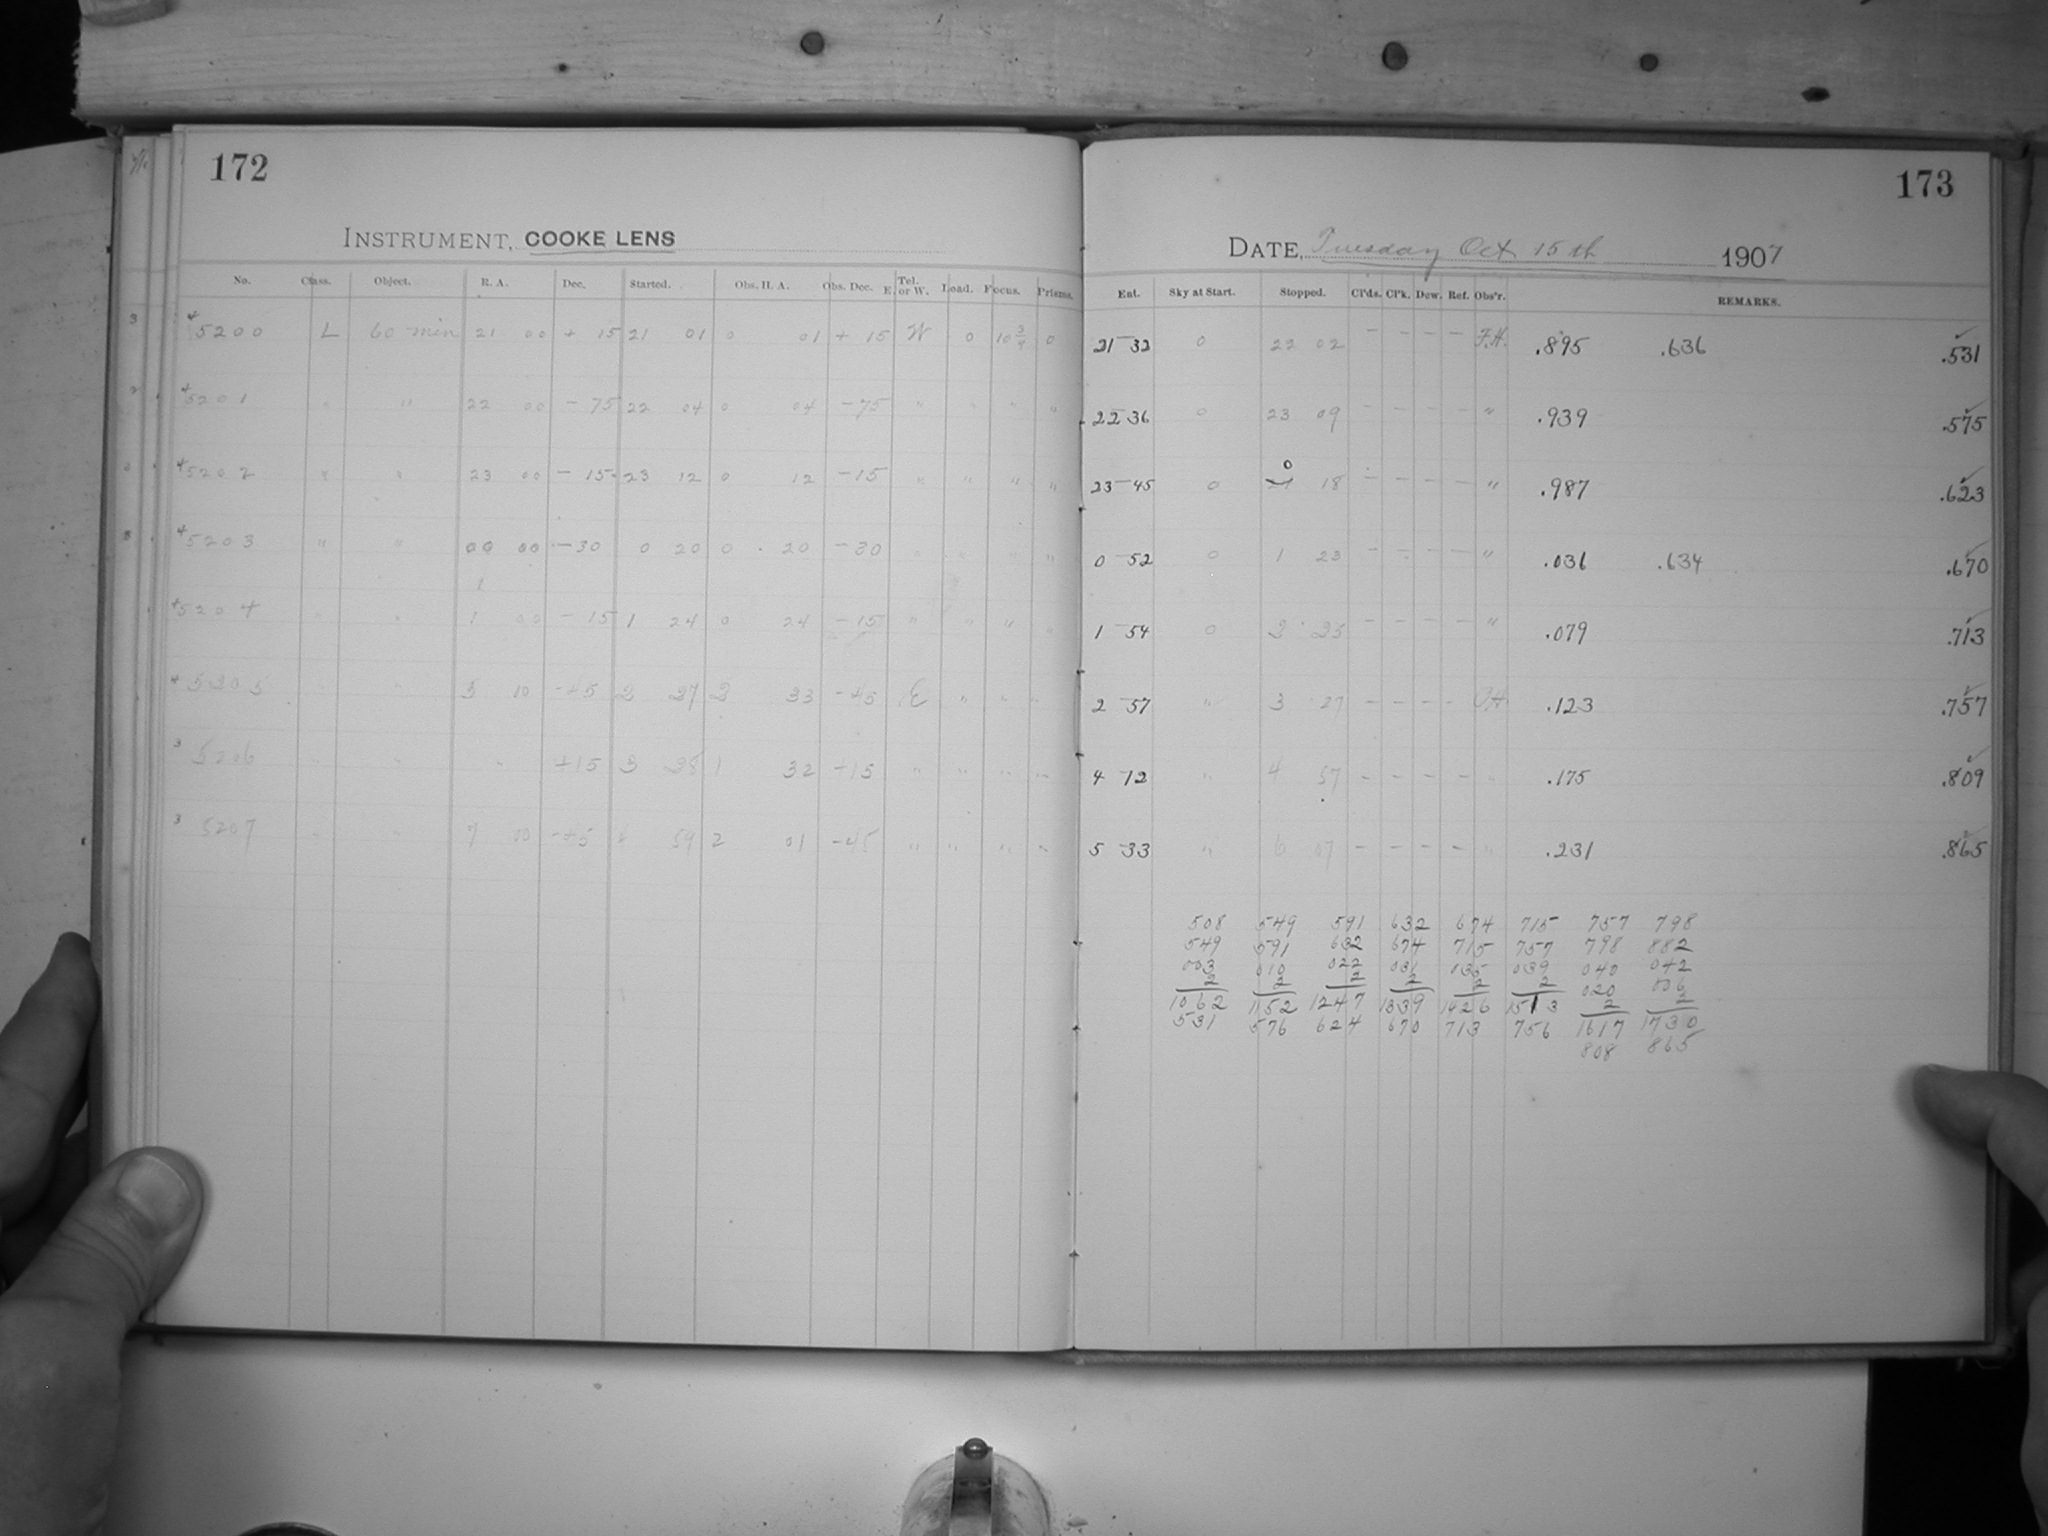 172
INSTRUMENT, COOKE LENS
No. Class. Object. R. A. Dec. Started. Obs. H. A. Obs. Dec. Tel. E. or W. Load. Focus. Prisms.
3 4 5200 L 60 min 21 00 + 15 21 01 0 01 + 15 W 0 10 3/4 0
2 4 5201 " " 22 00 - 75 22 04 0 04 - 75 " " " "
4 5202 " " 23 00 - 15 23 12 0 12 - 15 " " " "
3 4 5203 " " 00 00 - 30 0 20 0 20 - 30 " " " "
4 5204 " " 1 00 - 15 1 24 0 24 - 15 " " " "
4 5205 " " 5 10 -45 2 27 2 33 -45 E " " "
3 5206 " " " +15 3 28 1 32 +15 " " " "
3 5207 " " 7 00 -45 59 2 01 -45 " " " "
173
DATE, Tuesday Oct 15th 1907
Ent. Sky at Start. Stopped. Cl'ds. Cl'k. Dew. Ref. Obs'r. REMARKS.
21 32 0 22 02 - - - - F.H. .895 .636 .531
22 36 0 23 09 - - - - " .939 .575
23 45 0 0 18 - - - - " .987 .623
0 52 0 1 23 - - - - " .031 .634 .670
1 54 0 2 25 - - - - " .079 .713
2 57 " 3 27 - - - - .123 .757
4 12 " 4 57 - - - - " .175 .809
5 33 " 6 07 - - - - " .231 .865
508 549 591 632 674 715 757 798
549 591 632 674 715 757 798 882
003 010 022 031 035 039 040 042
2 2 2 2 2 2 020 006
1062 1152 1247 1339 1426 1513 2 2
531 576 624 670 713 756 1617 1730
808 865